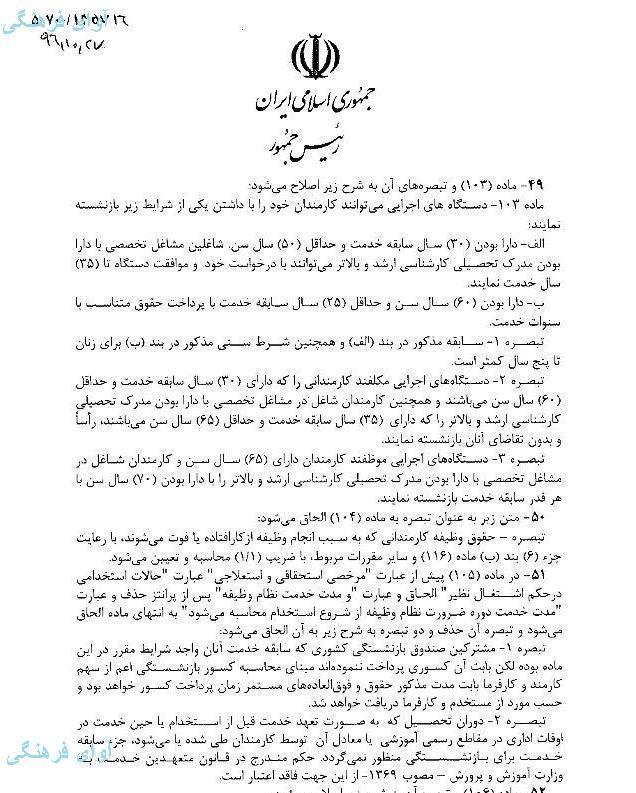 آوای فرهنگی
۵۷۰/۱۴۵۷۱۶
۹۶/۱۰/۲۷
جمهوری اسلامی ایران
رئیس جمهور
۴۹- ماده (۱۰۳) و تبصره‌های آن به شرح زیر اصلاح می‌شود:
ماده ۱۰۳- دستگاه های اجرایی می‌توانند کارمندان خود را با داشتن یکی از شرایط زیر بازنشسته
نمایند:
الف- دارا بودن (۳۰) سال سابقه خدمت و حداقل (۵۰) سال سن. شاغلین مشاغل تخصصی با دارا
بودن مدرک تحصیلی کارشناسی ارشد و بالاتر می‌توانند با درخواست خود و موافقت دستگاه تا (۳۵)
سال خدمت نمایند.
ب- دارا بودن (۶۰) سال سن و حداقل (۲۵) سال سابقه خدمت با پرداخت حقوق متناسب با
سنوات خدمت.
تبصره ۱- سابقه مذکور در بند (الف) و همچنین شرط سنی مذکور در بند (ب) برای زنان
تا پنج سال کمتر است.
تبصره ۲- دستگاه‌های اجرایی مکلفند کارمندانی را که دارای (۳۰) سال سابقه خدمت و حداقل
(۶۰) سال سن می‌باشند و همچنین کارمندان شاغل در مشاغل تخصصی با دارا بودن مدرک تحصیلی
کارشناسی ارشد و بالاتر را که دارای (۳۵) سال سابقه خدمت و حداقل (۶۵) سال سن می‌باشند، رأساً
و بدون تقاضای آنان بازنشسته نمایند.
تبصره ۳- دستگاه‌های اجرایی موظفند کارمندان دارای (۶۵) سال سن و کارمندان شاغل در
مشاغل تخصصی با دارا بودن مدرک تحصیلی کارشناسی ارشد و بالاتر را با دارا بودن (۷۰) سال سن با
هر قدر سابقه خدمت بازنشسته نمایند.
۵۰- متن زیر به عنوان تبصره به ماده (۱۰۴) الحاق می‌شود:
تبصره – حقوق وظیفه کارمندانی که به سبب انجام وظیفه ازکارافتاده یا فوت می‌شوند، با رعایت
جزء (۶) بند (ب) ماده (۱۱۶) و سایر مقررات مربوط، با ضریب (۱/۱) محاسبه و تعیین می‌شود.
۵۱- در ماده (۱۰۵) پیش از عبارت "مرخصی استحقاقی و استعلاجی" عبارت "حالات استخدامی
درحکم اشتغال نظیر" الحاق و عبارت "و مدت خدمت نظام وظیفه" پس از پرانتز حذف و عبارت
"مدت خدمت دوره ضرورت نظام وظیفه از شروع استخدام محاسبه می‌شود" به انتهای ماده الحاق
می‌شود و تبصره آن حذف و دو تبصره به شرح زیر به آن الحاق می‌شود:
تبصره ۱- مشترکین صندوق بازنشستگی کشوری که سابقه خدمت آنان واجد شرایط مقرر در این
ماده بوده لکن بابت آن کسوری پرداخت ننموده‌اند مبنای محاسبه کسور بازنشستگی اعم از سهم
کارمند و کارفرما بابت مدت مذکور حقوق و فوق‌العاده‌های مستمر زمان پرداخت کسور خواهد بود و
حسب مورد از مستخدم و کارفرما دریافت خواهد شد.
تبصره ۲- دوران تحصیل که به صورت تعهد خدمت قبل از استخدام یا حین خدمت در
اوقات اداری در مقاطع رسمی آموزشی یا معادل آن توسط کارمندان طی شده یا می‌شود، جزء سابقه
خدمت برای بازنشستگی منظور نمی‌گردد. حکم مندرج در قانون متعهدین خدمت به
وزارت آموزش و پرورش – مصوب ۱۳۶۹- از این جهت فاقد اعتبار است.
آوای فرهنگی